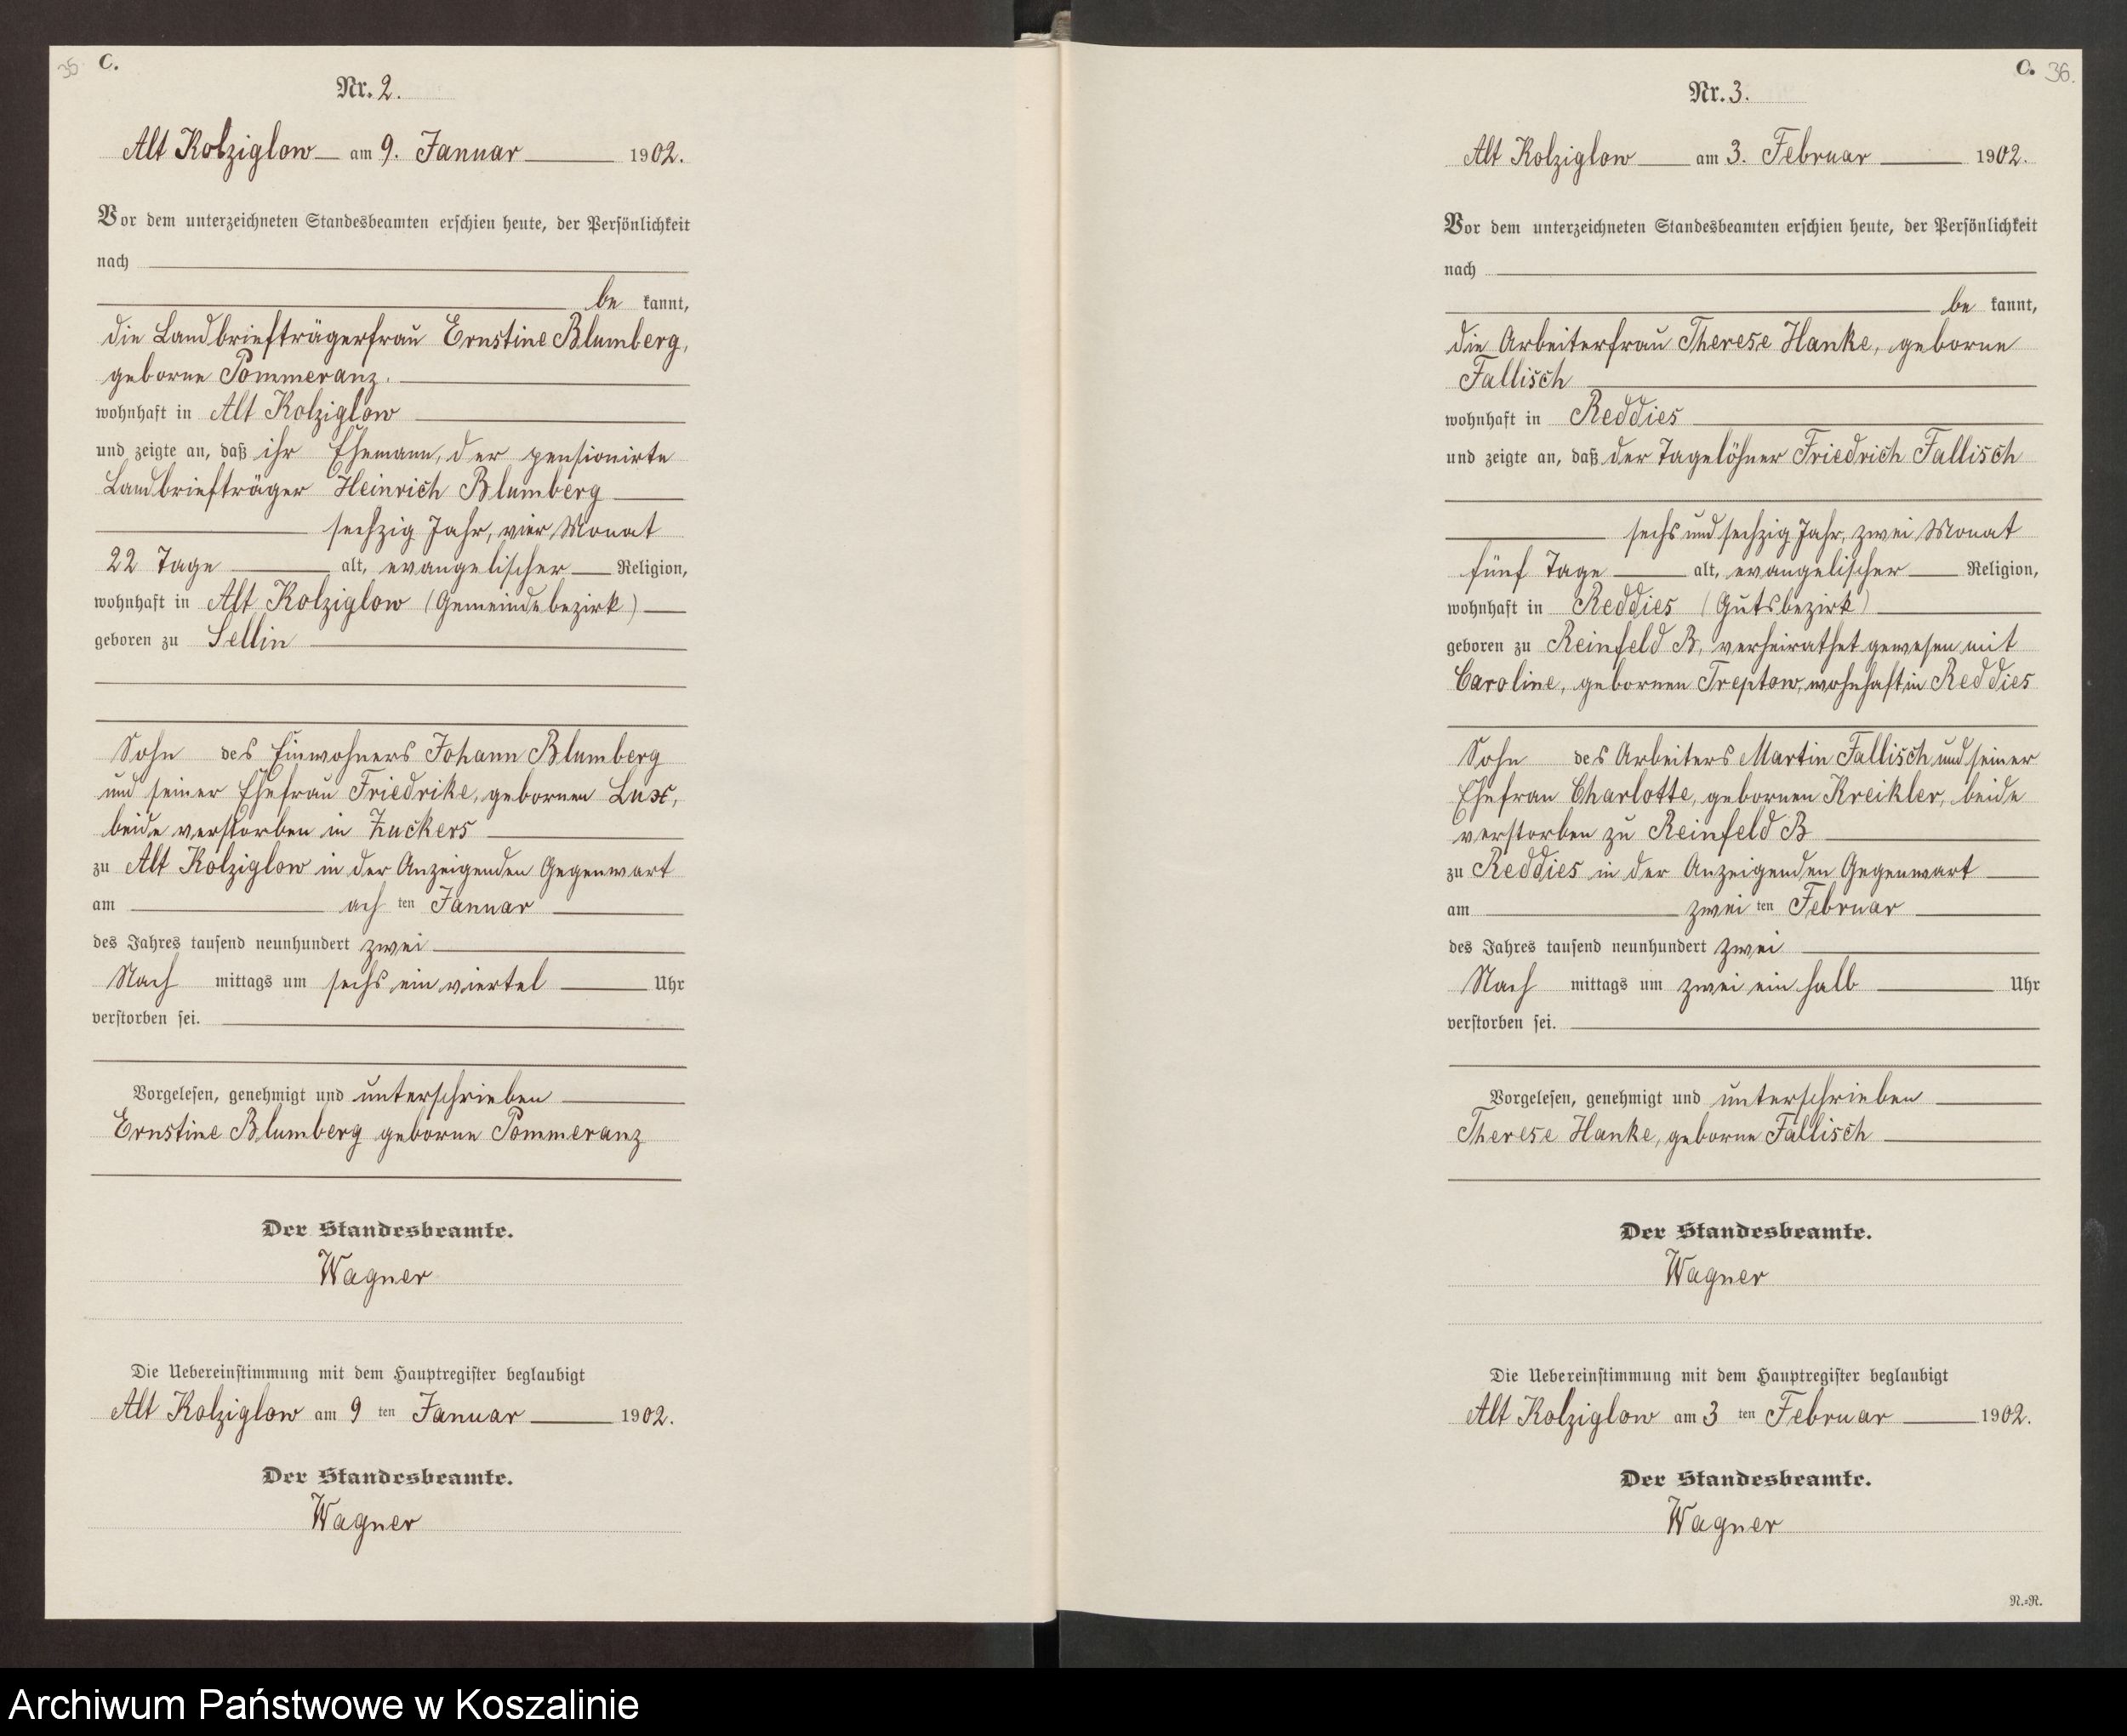 35. C.
Nr. 2.
Alt Kolziglow am 9. Januar 1902.
Vor dem unterzeichneten Standesbeamten erschien heute, der Persönlichkeit
nach
be kannt,
die Landbriefträgerfrau Ernstine Blumberg,
geborne Pommeranz.
wohnhaft in Alt Kolziglow
und zeigte an, daß ihr Ehemann, der pensionirte
Landbriefträger Heinrich Blumberg
sechzig Jahr, vier Monat
22 Tage alt, evangelischer Religion,
wohnhaft in Alt Kolziglow (Gemeindebezirk)
geboren zu Sellin
Sohn des Einwohners Johann Blumberg
und seiner Ehefrau Friedrike, gebornen Lux,
beide verstorben in Zuckers
zu Alt Kolziglow in der Anzeigenden Gegenwart
am ach ten Januar
des Jahres tausend neunhundert zwei
Nach mittags um sechs ein viertel Uhr
verstorben sei.
Vorgelesen, genehmigt und unterschrieben
Ernstine Blumberg geborne Pommeranz
Der Standesbeamte.
Wagner
Die Uebereinstimmung mit dem Hauptregister beglaubigt
Alt Kolziglow am 9 ten Januar 1902.
Der Standesbeamte.
Wagner
C. 36.
Nr. 3.
Alt Kolziglow am 3. Februar 1902.
Vor dem unterzeichneten Standesbeamten erschien heute, der Persönlichkeit
nach
be kannt,
die Arbeiterfrau Therese Hanke, geborne
Fallisch
wohnhaft in Reddies
und zeigte an, daß der Tagelöhner Friedrich Fallisch
sechs und sechzig Jahr, zwei Monat
fünf Tage alt, evangelischer Religion,
wohnhaft in Reddies (Gutsbezirk)
geboren zu Reinfeld B, verheirathet gewesen mit
Caroline, gebornen Treptow, wohnhaft in Reddies
Sohn des Arbeiters Martin Fallisch und seiner
Ehefrau Charlotte, gebornen Kreikler, beide
verstorben zu Reinfeld B
zu Reddies in der Anzeigenden Gegenwart
am zwei ten Februar
des Jahres tausend neunhundert zwei
Nach mittags um zwei ein halb Uhr
verstorben sei.
Vorgelesen, genehmigt und unterschrieben
Therese Hanke, geborne Fallisch
Der Standesbeamte.
Wagner
Die Uebereinstimmung mit dem Hauptregister beglaubigt
Alt Kolziglow am 3 ten Februar 1902.
Der Standesbeamte.
Wagner
N.=R.
Archiwum Państwowe w Koszalinie